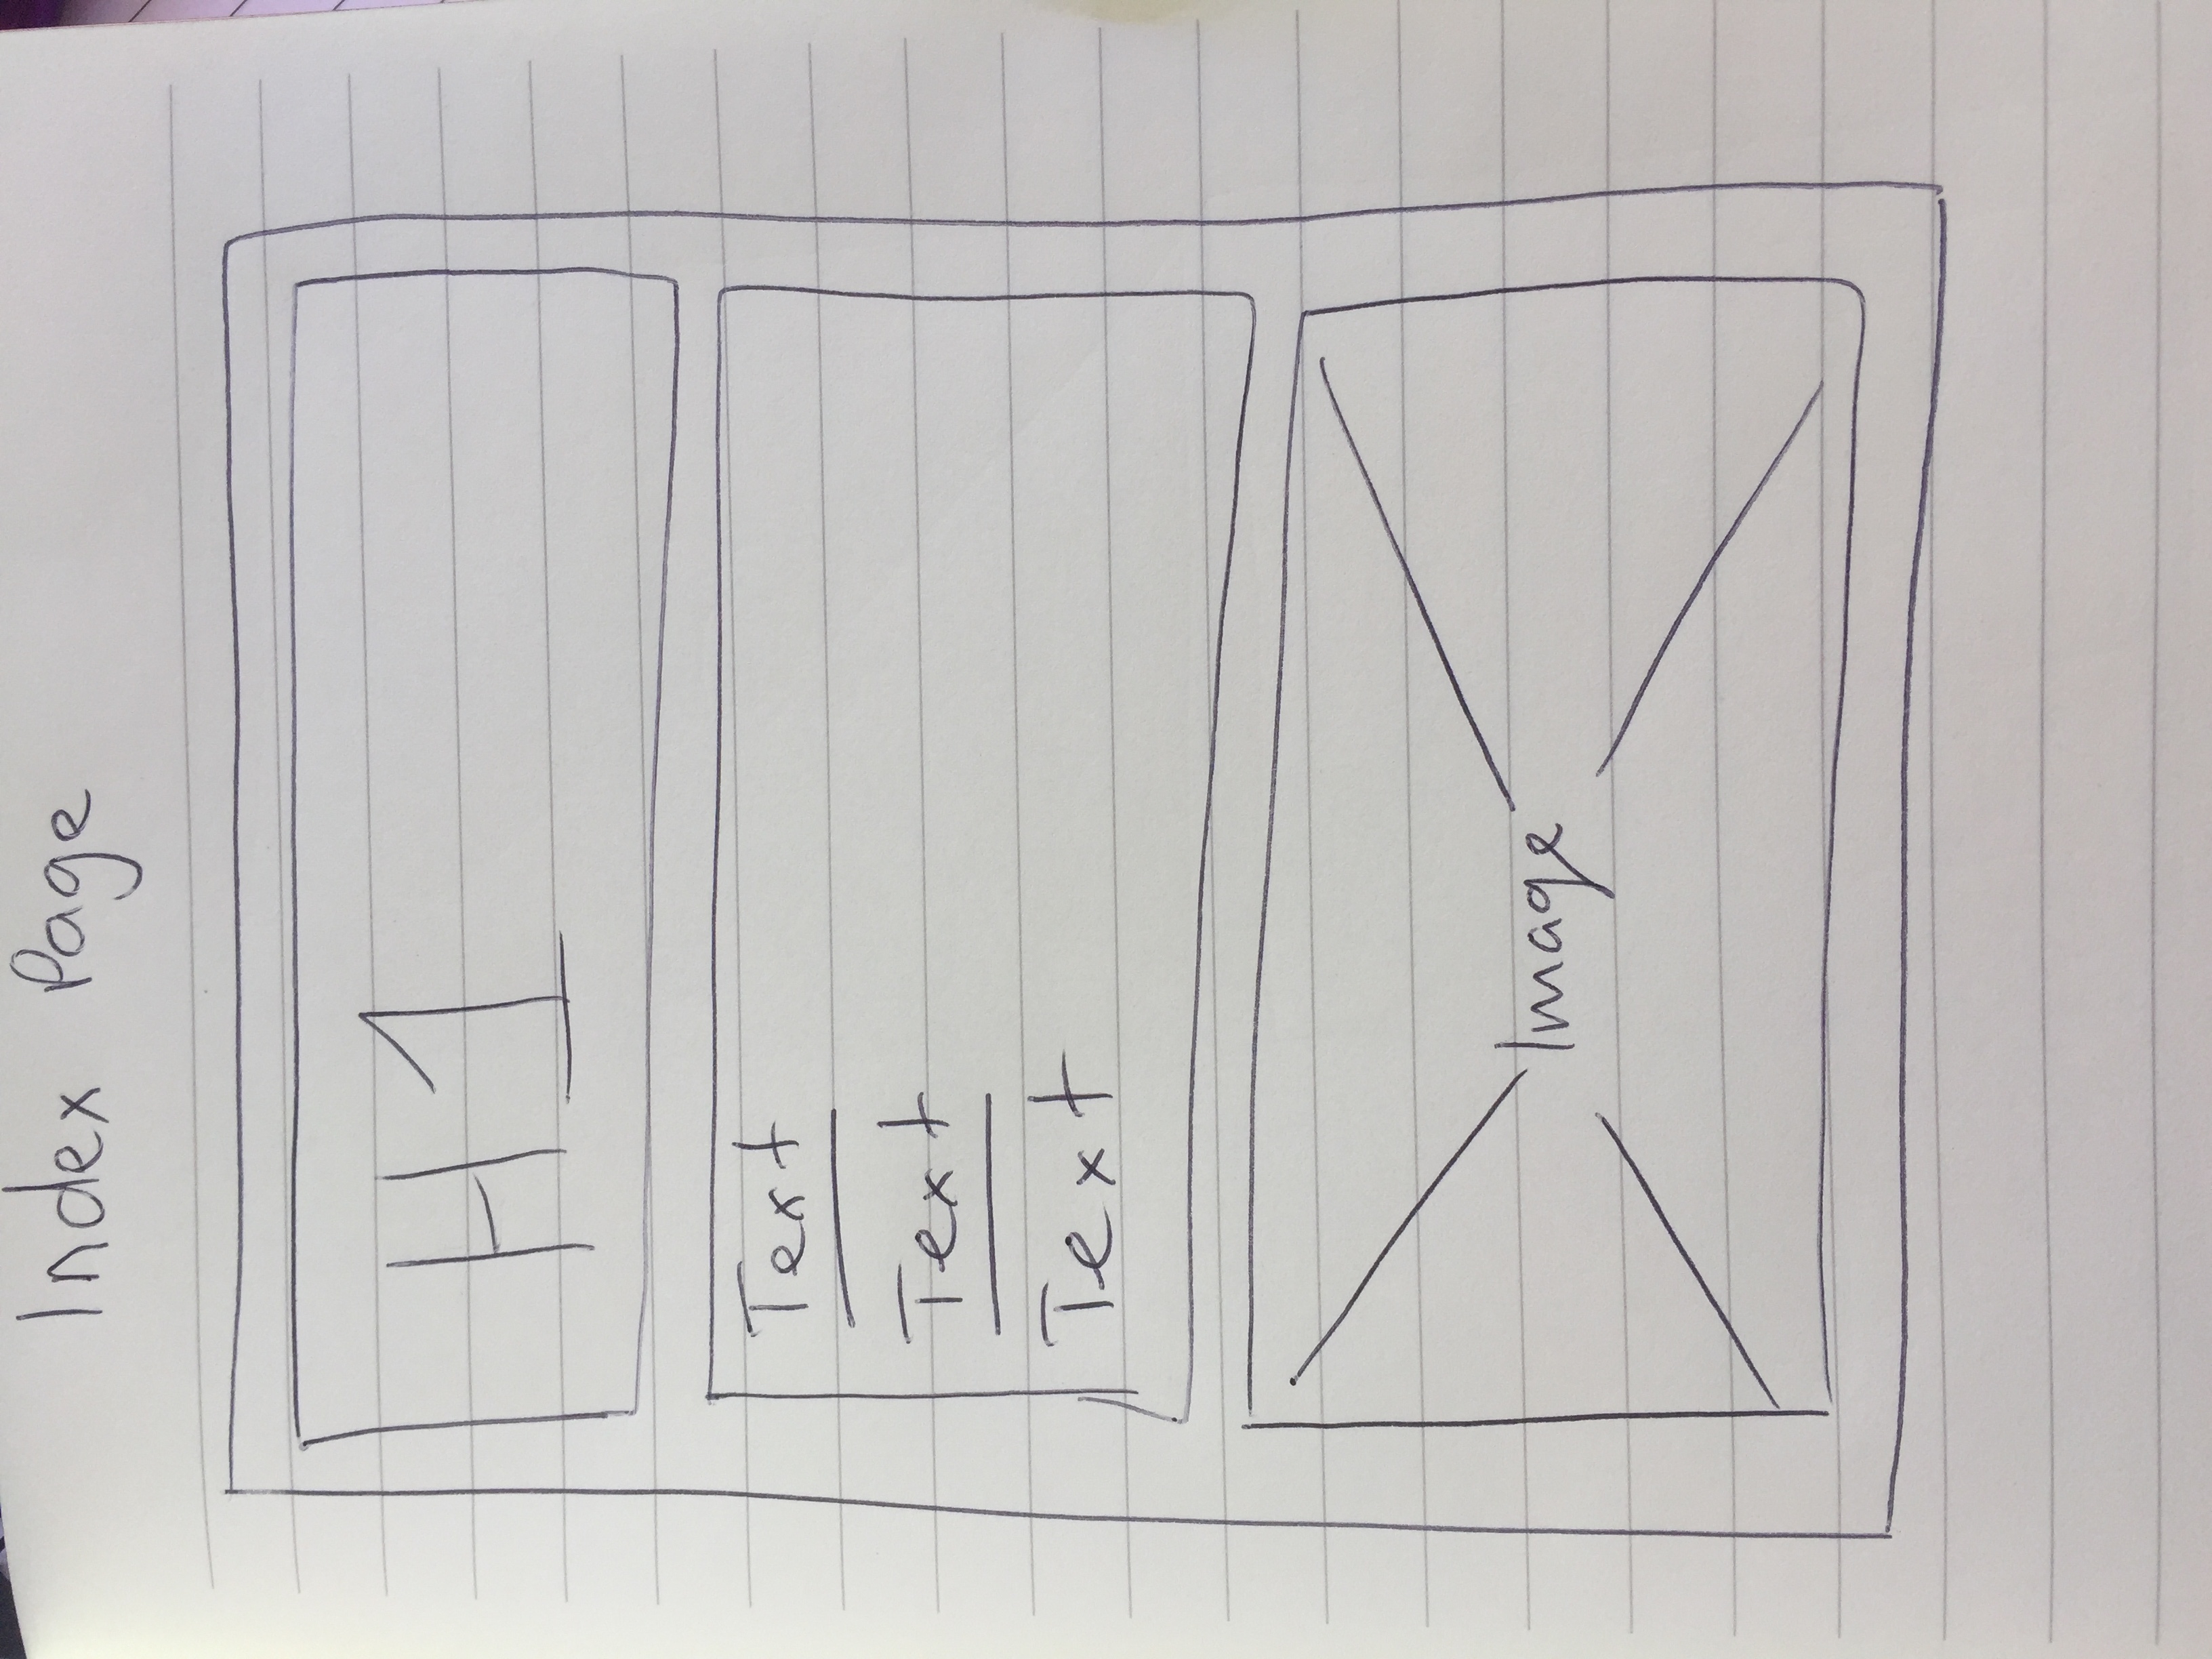 Index Page
H1
Text
Text
Text
Image